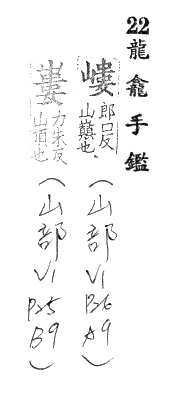 22龍龕手鑑
嶁郎口反山巔也(山部V1P26A9)
㟺力朱反山頂也(山部V1P25B9)